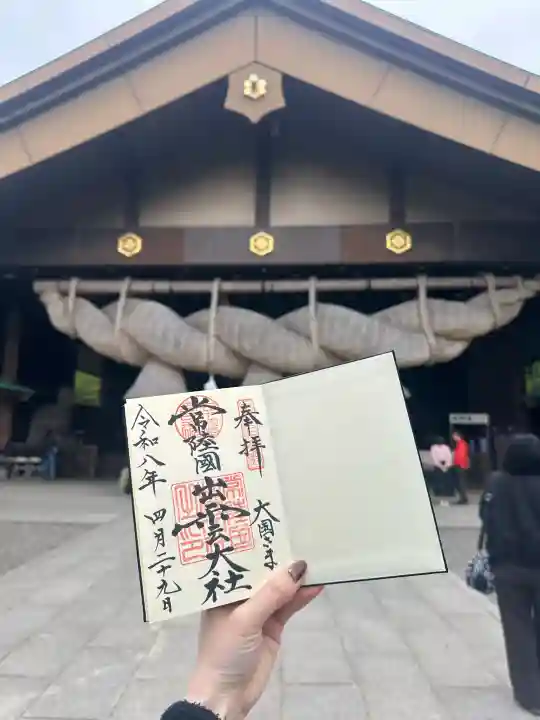 奉拝
大国さま
常陸國
出雲大社
令和八年 四月二十九日